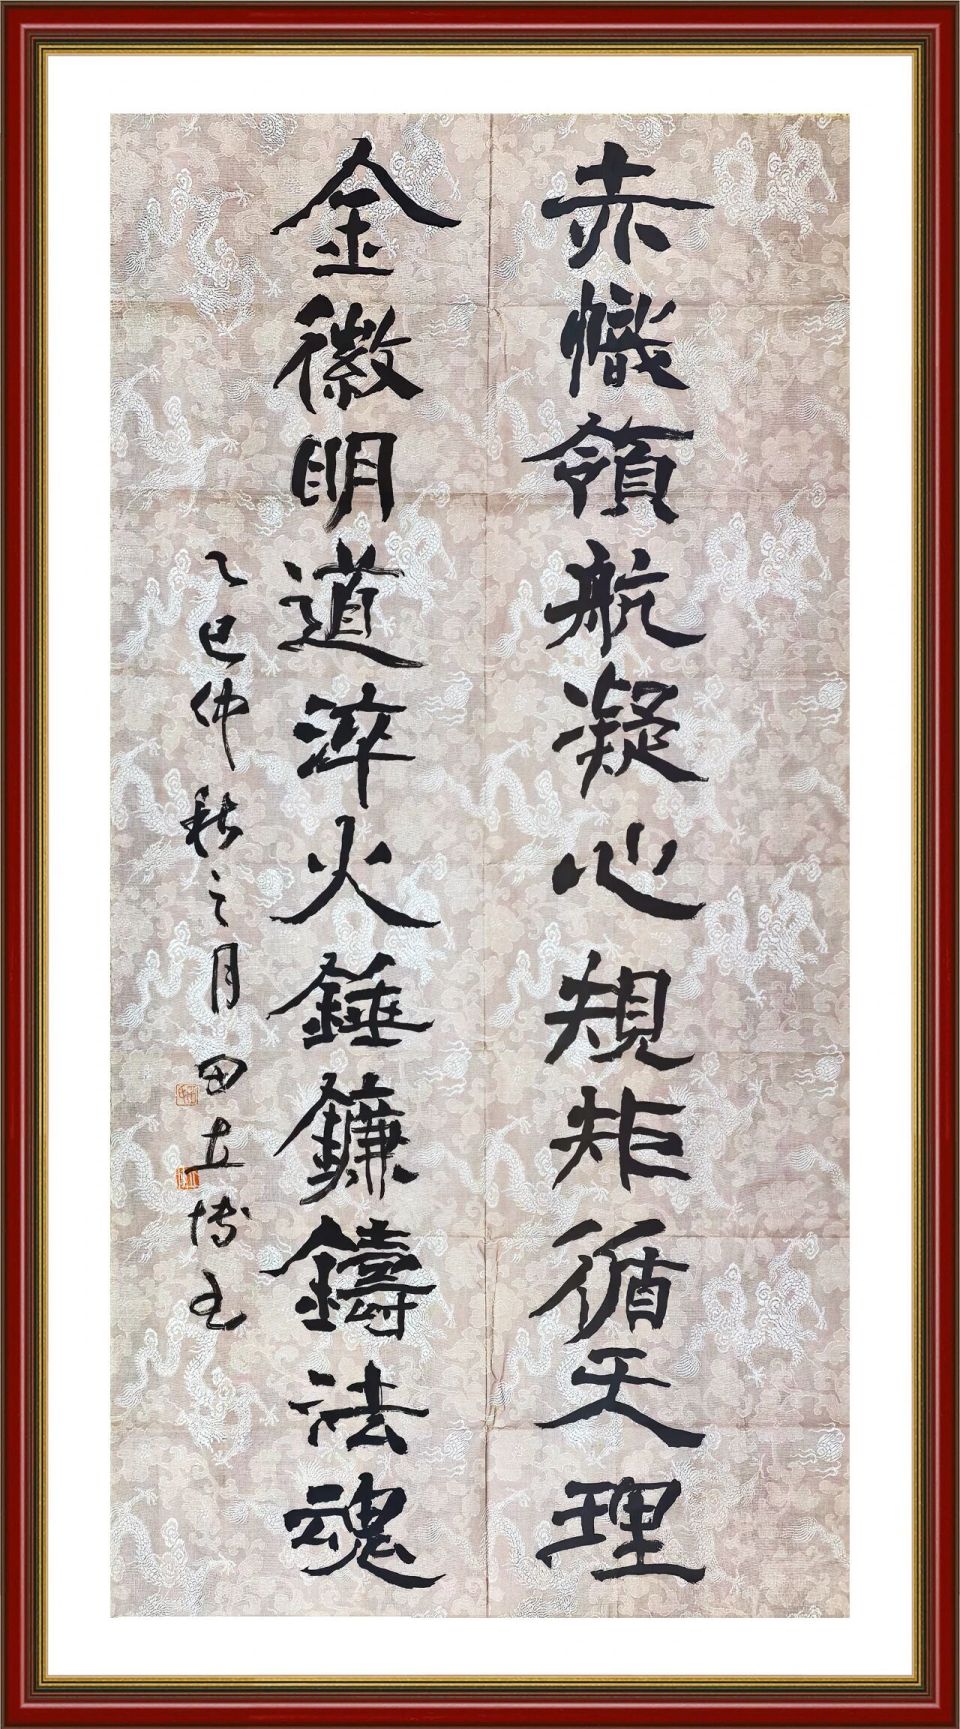 赤幟領航凝心規矩循天理
金徽明道淬火錘鐮鑄法魂
乙巳仲秋之月田立博书